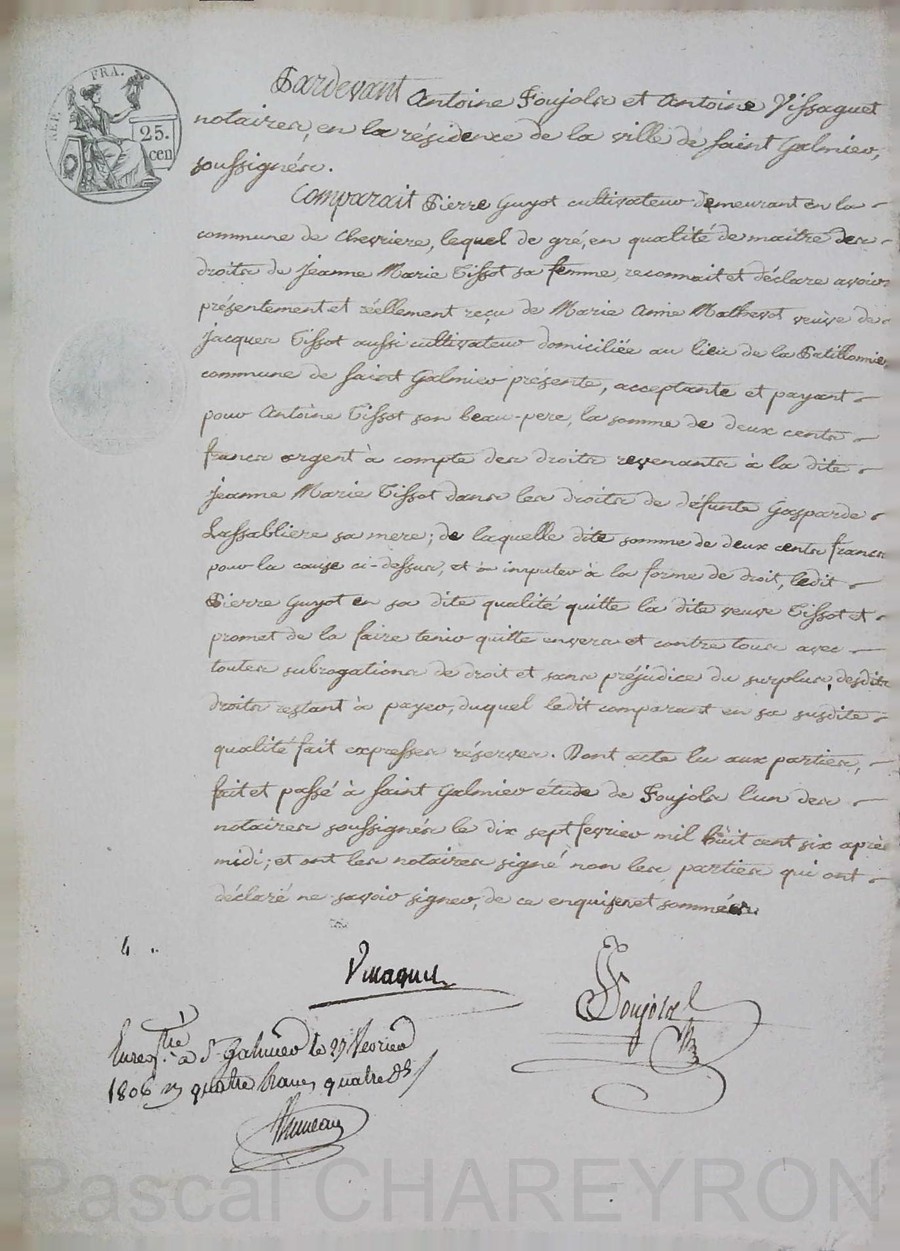 REP. FRA.
25.
cen
Pardevant Antoine Poujols et Antoine Vissaguet
notaires, en la résidence de la ville de saint Galmier,
soussignés.
Comparait Pierre Guyot cultivateur demeurant en la
commune de Chevriere, lequel de gré, en qualité de maitre des
droits de Jeanne Marie Tissot sa femme, reconnait et déclare avoir
présentement et réellement reçu de Marie Anne Mathevot veuve de
Jacques Tissot aussi cultivateur domiciliée au lieu de la
commune de saint Galmier présente, acceptante et payant
pour Antoine Tissot son beau-pere, la somme de deux cents
francs argent à compte des droits revenants à la dite
Jeanne Marie Tissot dans les droits de défunte Gasparde
Lassabliere sa mere; de laquelle dite somme de deux cents francs
pour la cause ci-dessus, et à imputer à la forme de droit, ledit
Pierre Guyot en sa dite qualité quitte la dite veuve Tissot et
promet de la faire tenir quitte envers et contre tous avec
toutes subrogations de droit et sans préjudice du surplus desdits
droits restant à payer, duquel ledit comparant en sa susdite
qualité fait expresses réserves. Dont acte lu aux parties,
fait et passé à saint Galmier étude de Poujols l'un des
notaires soussignés le dix sept fevrier mil huit cent six après
midi; et ont les notaires signé non les parties qui ont
déclaré ne savoir signer, de ce enquises et sommées.
4
Vissaguet
Poujols
Enreg.tré à S. Galmier le fevrier
1806 quatre francs quatre
Pascal CHAREYRON